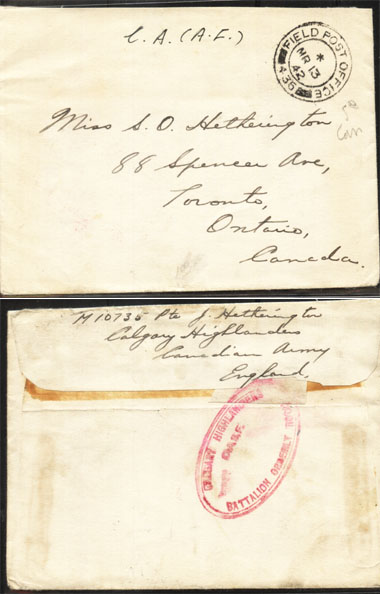 C.A.(A.F.)
FIELD POST OFFICE
*
MR 13
42
439
Miss S. O. Hetherington
88 Spencer Ave,
Toronto,
Ontario,
Canada.
M10735 Pte J. Hetherington
Calgary Highlanders
Canadian Army
England
CALGARY HIGHLANDERS
BATTALION ORDERLY ROOM